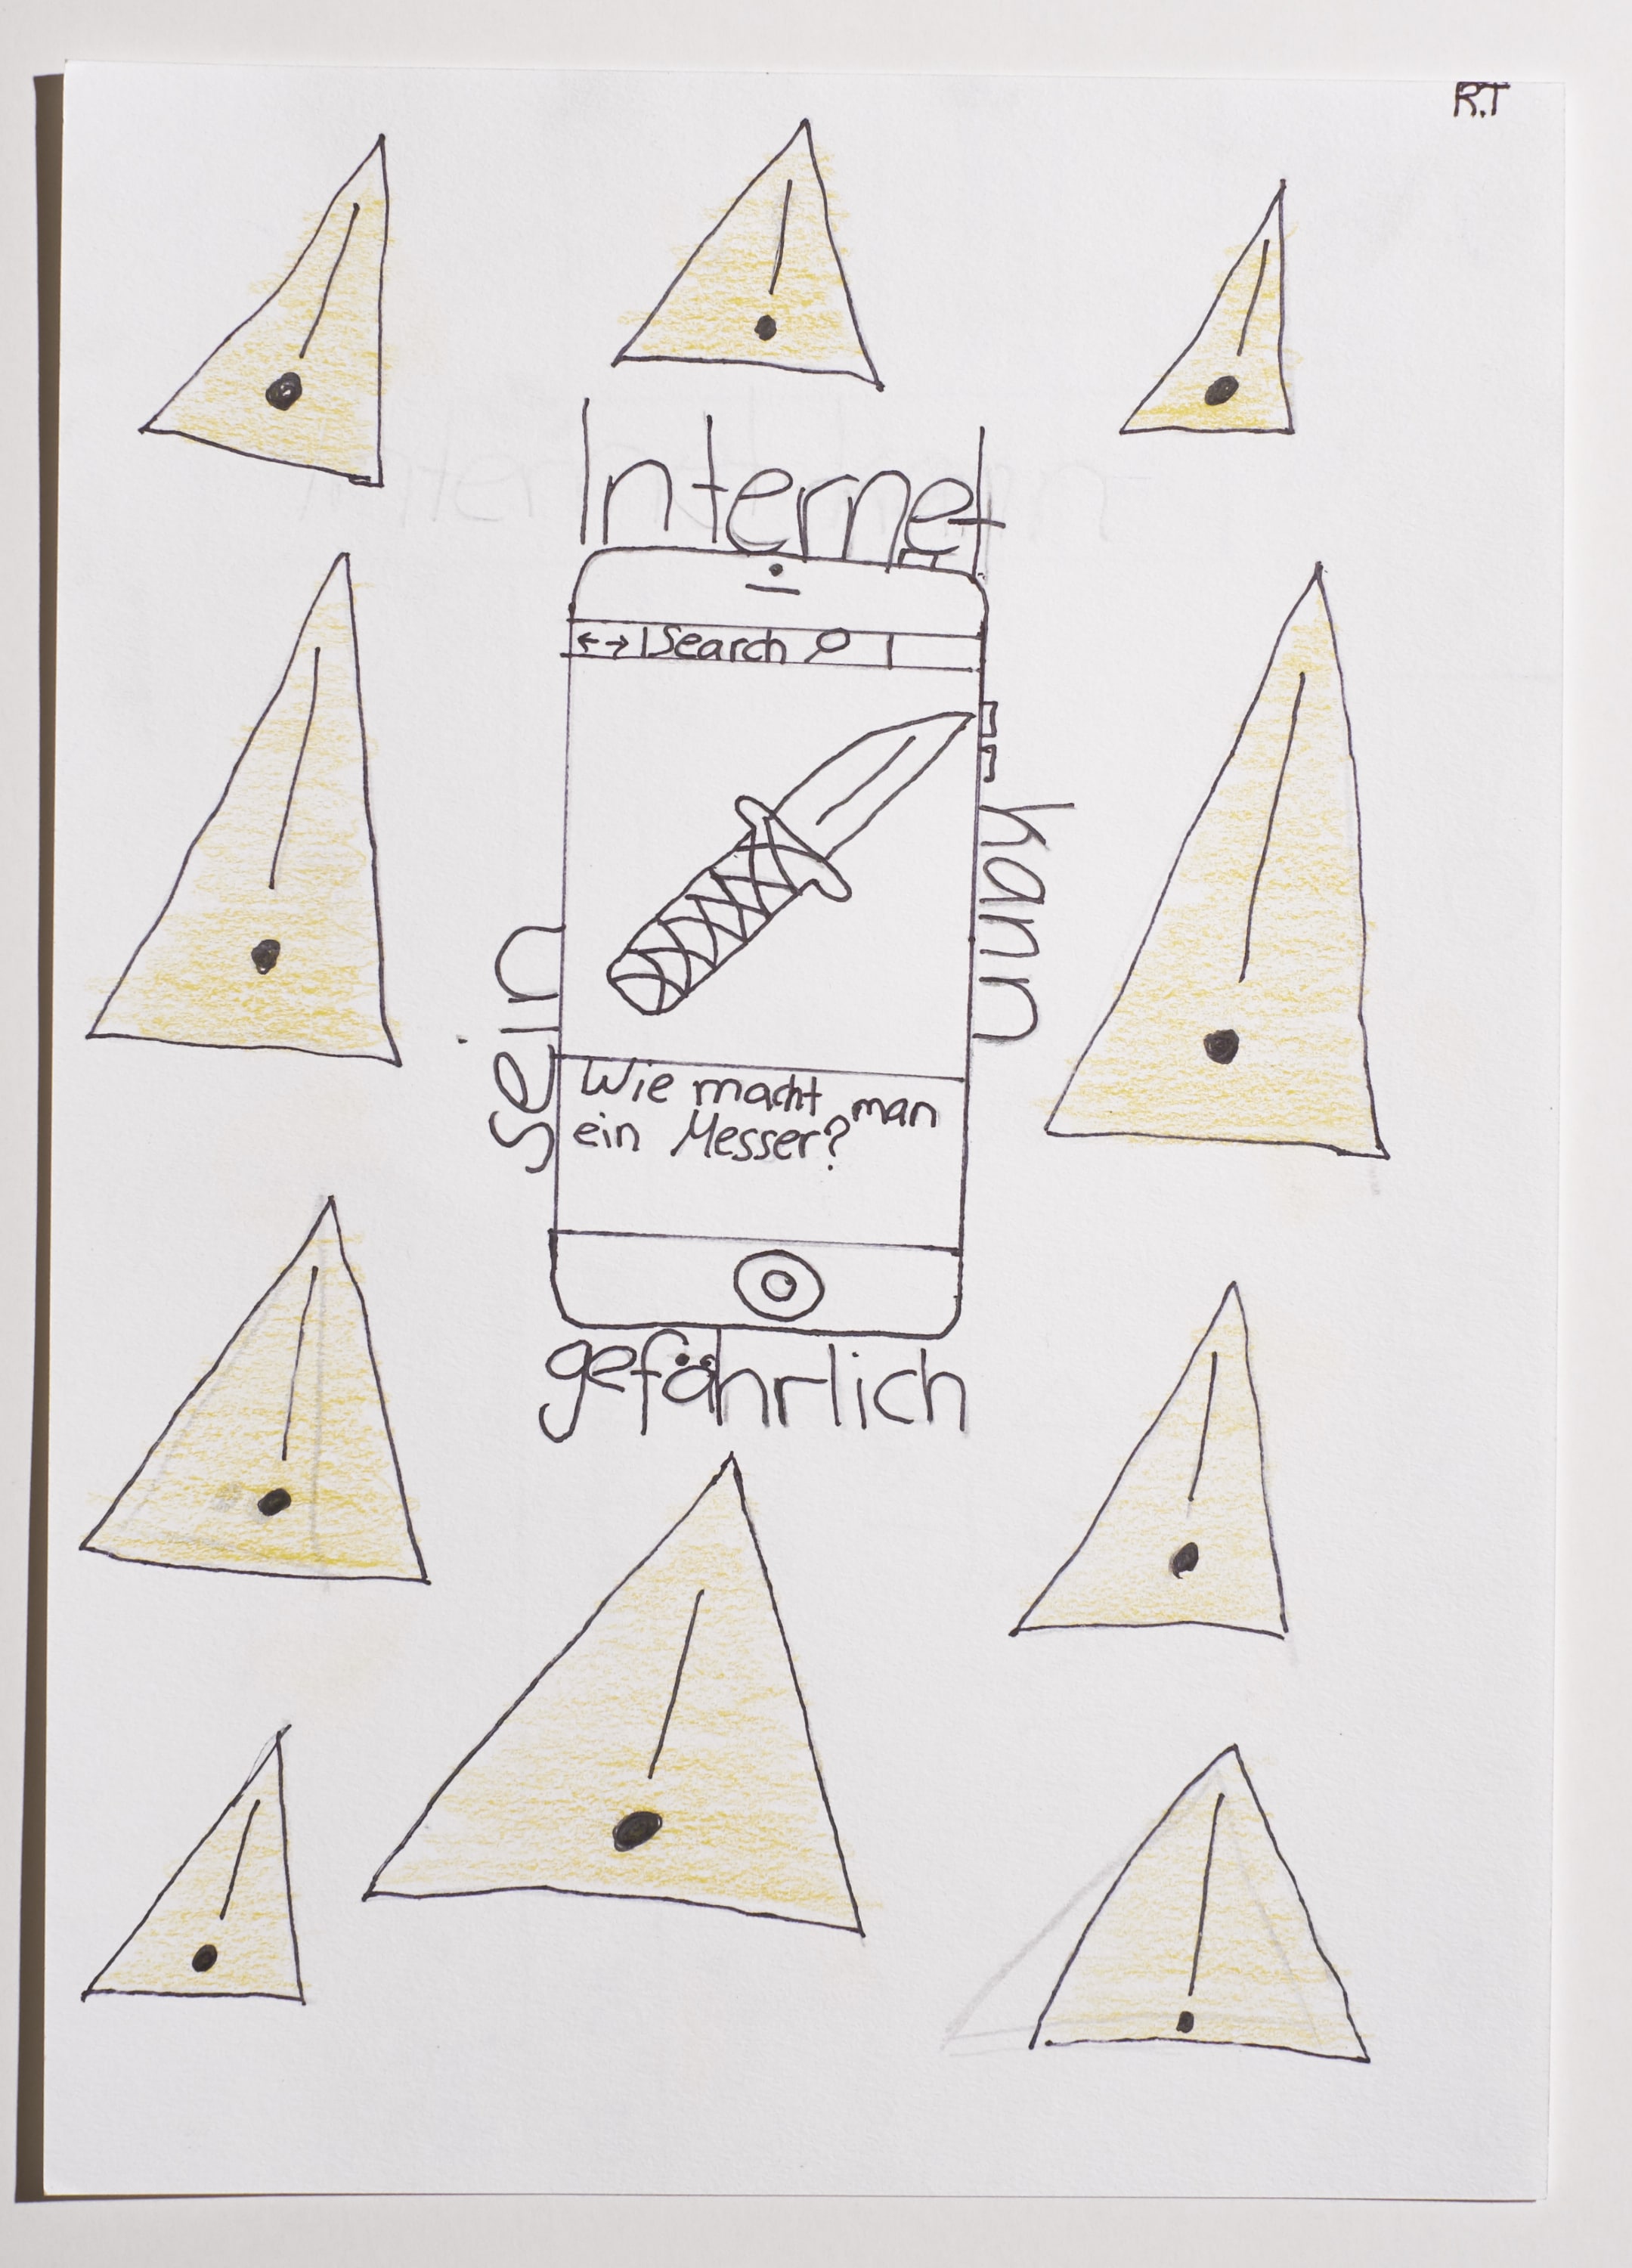 R.T
Internet
←→ Search
kann
Wie macht man
ein Messer?
gefährlich
sein